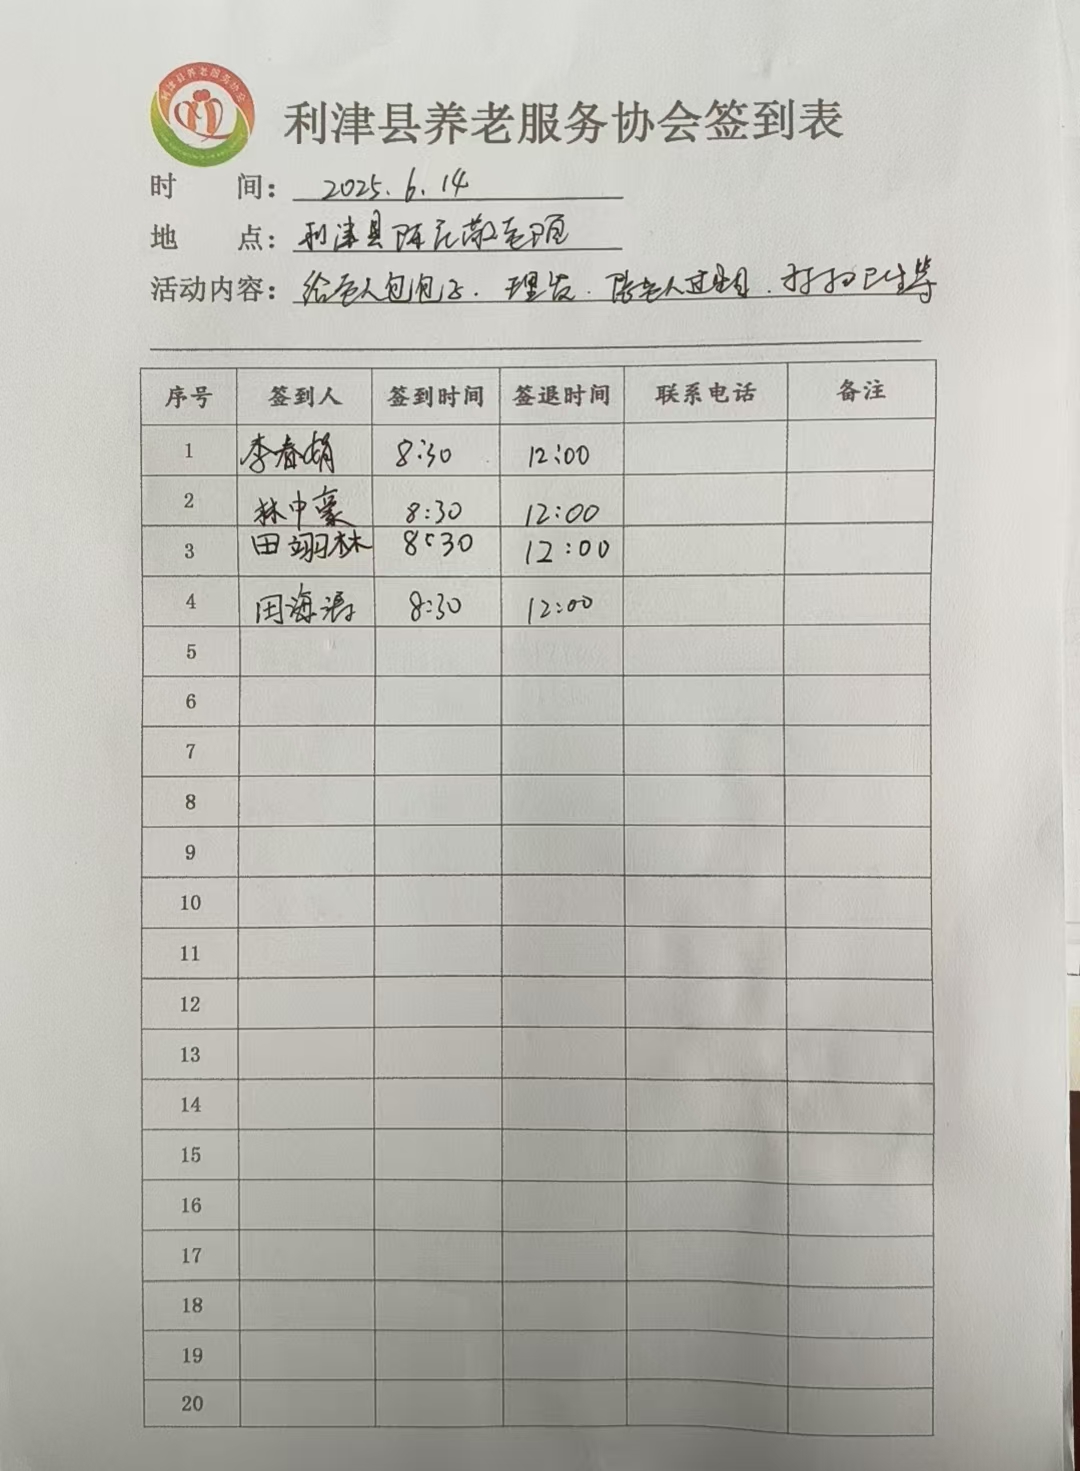 利津县养老服务协会
利津县养老服务协会签到表
时 间：2025.6.14
地 点：利津县陈庄敬老院
活动内容：给老人包包子.理发.陪老人过生日.打扫卫生等
序号 签到人 签到时间 签退时间 联系电话 备注
1 李春娟 8:30 12:00
2 林中豪 8:30 12:00
3 田翊林 8:30 12:00
4 田海涛 8:30 12:00
5
6
7
8
9
10
11
12
13
14
15
16
17
18
19
20